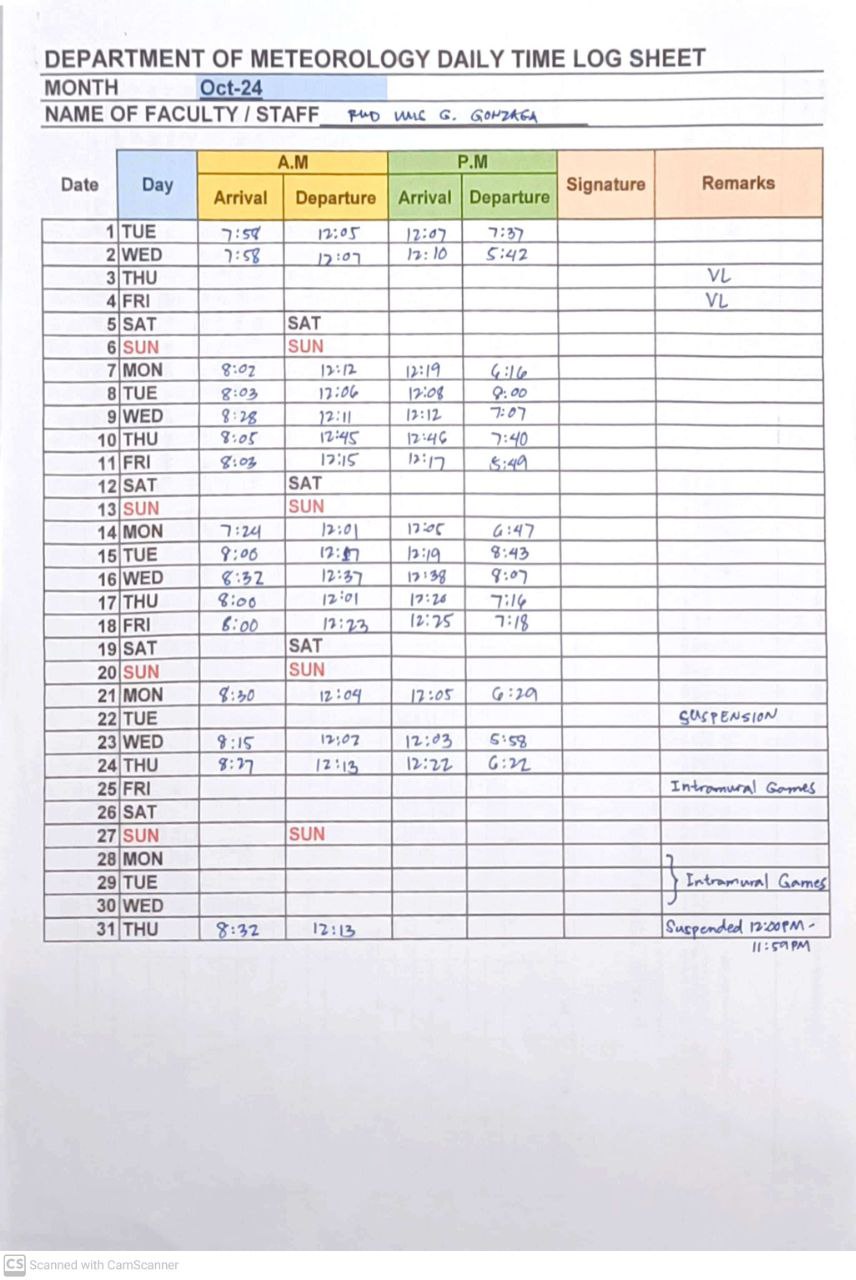 DEPARTMENT OF METEOROLOGY DAILY TIME LOG SHEET
MONTH Oct-24
NAME OF FACULTY / STAFF G. GONZAGA
A.M P.M
Date Day Arrival Departure Arrival Departure Signature Remarks
1 TUE 7:58 12:05 12:07 7:37
2 WED 7:58 12:07 12:10 5:42
3 THU VL
4 FRI VL
5 SAT SAT
6 SUN SUN
7 MON 8:02 12:12 12:19 6:16
8 TUE 8:03 12:06 12:08 8:00
9 WED 8:28 12:11 12:12 7:07
10 THU 8:05 12:45 12:46 7:40
11 FRI 8:03 12:15 12:17 5:49
12 SAT SAT
13 SUN SUN
14 MON 7:24 12:01 12:05 6:47
15 TUE 8:06 12:19 8:43
16 WED 8:32 12:37 12:38 8:07
17 THU 8:00 12:01 12:26 7:16
18 FRI 8:00 12:23 12:25 7:18
19 SAT SAT
20 SUN SUN
21 MON 8:30 12:04 12:05 6:29
22 TUE SUSPENSION
23 WED 8:15 12:02 12:03 5:58
24 THU 8:27 12:13 12:22 6:22
25 FRI Intramural Games
26 SAT
27 SUN SUN
28 MON
29 TUE Intramural Games
30 WED
31 THU 8:32 12:13 Suspended 12:00PM -
11:59 PM
CS Scanned with CamScanner